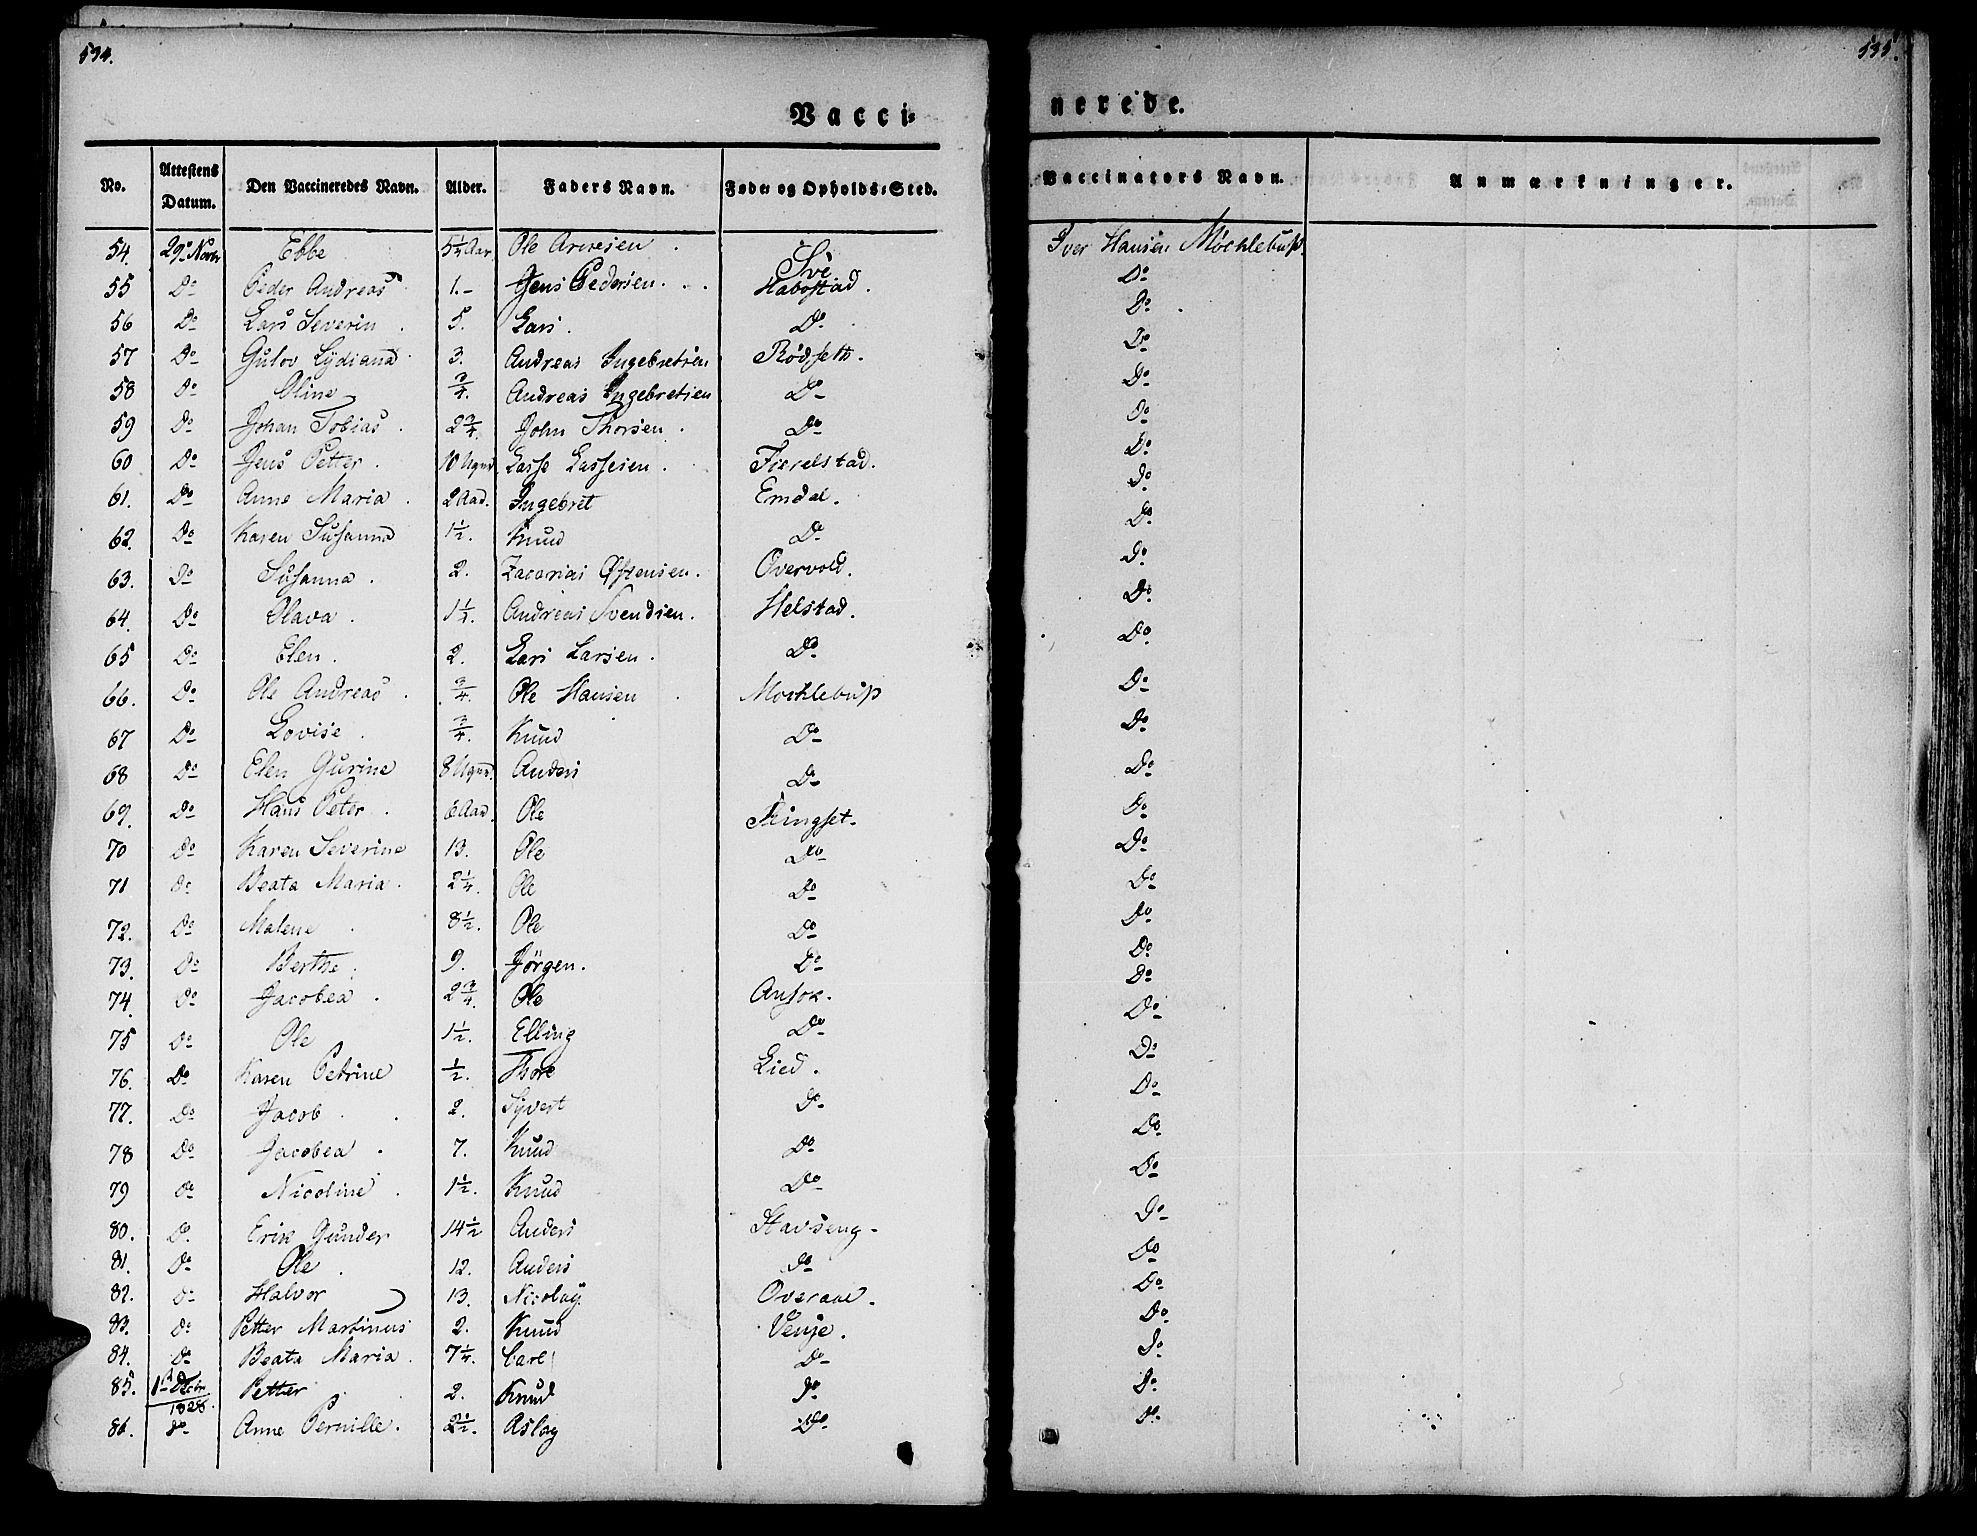 534.
535.
Vacci-
nerede.
No. | Attestens Datum. | Den Vaccineredes Navn. | Alder. | Faders Navn. | Føde- og Opholds-Sted. | Vaccinators Navn. | Anmærkninger.
54. | 29de Novbr | Ebbe | 5 1/4 Aar | Ole | Sve | Iver Hansen Mochlebust.
55 | Do | Peder Andreas | 1.- | Jens Pedersen. | Habostad. | Do
56 | Do | Lars Severin | 5. | Lars. | Do | Do
57 | Do | Gulov Lydiana | 3. | Andreas Ingebretsen | Rödseth. | Do
58 | Do | Oline | 3/4. | Andreas Ingebretsen | Do | Do
59 | Do | Johan Tobias. | 2 3/4. | John Thorsen. | Do | Do
60 | Do | Jens Petter. | 10 Uger | Lasse Lassesen. | Fierelstad. | Do
61. | Do | Anne Maria. | 2 Aar. | Ingebret | Emdal. | Do
62. | Do | Karen Susanna | 1 1/2. | Knud | Do | Do
63. | Do | Susanna. | 2. | Zacarias Østensen. | Overvold. | Do
64. | Do | Olava. | 1 1/4. | Andreas Svendsen. | Helstad. | Do
65 | Do | Elen. | 2. | Lars Larsen. | Do | Do
66. | Do | Ole Andreas. | 3/4. | Ole Hansen | Mochlebust | Do
67 | Do | Lovise. | 3/4. | Knud | Do | Do
68 | Do | Elen Gurine | 8 Uger. | Anders | Do | Do
69. | Do | Hans Peter. | 6 Aar. | Ole | Ringset. | Do
70 | Do | Karen Severine | 13. | Ole | Do | Do
71 | Do | Beata Maria. | 2 1/4. | Ole | Do | Do
72. | Do | Malene | 8 1/2. | Ole | Do | Do
73. | Do | Berthe. | 9. | Jörgen. | Do | Do
74 | Do | Jacobea. | 2 3/4. | Ole | Ansok. | Do
75 | Do | Ole | 1 1/2. | Elling | Do | Do
76. | Do | Karen Petrine | 1/2. | Thore | Lied. | Do
77. | Do | Jacob. | 2. | Syvert | Do | Do
78 | Do | Jacobea. | 7. | Knud | Do | Do
79 | Do | Nicoline. | 1 1/2. | Knud | Do | Do
80. | Do | Erik Gunder | 14 1/2 | Anders | Stavseng. | Do
81. | Do | Ole. | 12. | Anders | Do | Do
82. | Do | Halvor | 13. | Nicolay. | Overaae. | Do
83. | Do | Petter Martinus | 2. | Knud | Venje. | Do
84. | Do | Beata Maria. | 7 1/4. | Carl | Do | Do
85. | 1ste Decbr 1828. | Petter | 2. | Knud | Do | Do
86. | Do | Anne Pernille. | 2 1/2. | Aslag | Do | Do